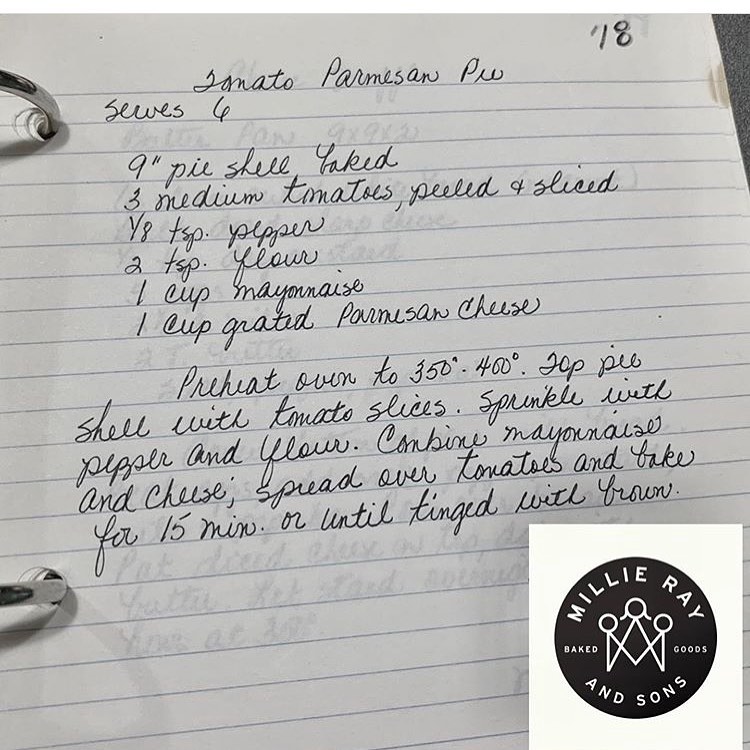 '18
Tomato Parmesan Pie
Serves 6
9" pie shell baked
3 medium tomatoes, peeled & sliced
1/8 tsp. pepper
2 tsp. flour
1 cup mayonnaise
1 cup grated Parmesan Cheese
Preheat oven to 350°-400°. Top pie
shell with tomato slices. Sprinkle with
pepper and flour. Combine mayonnaise
and cheese; spread over tomatoes and bake
for 15 min. or until tinged with brown.
MILLIE RAY
BAKED GOODS
AND SONS